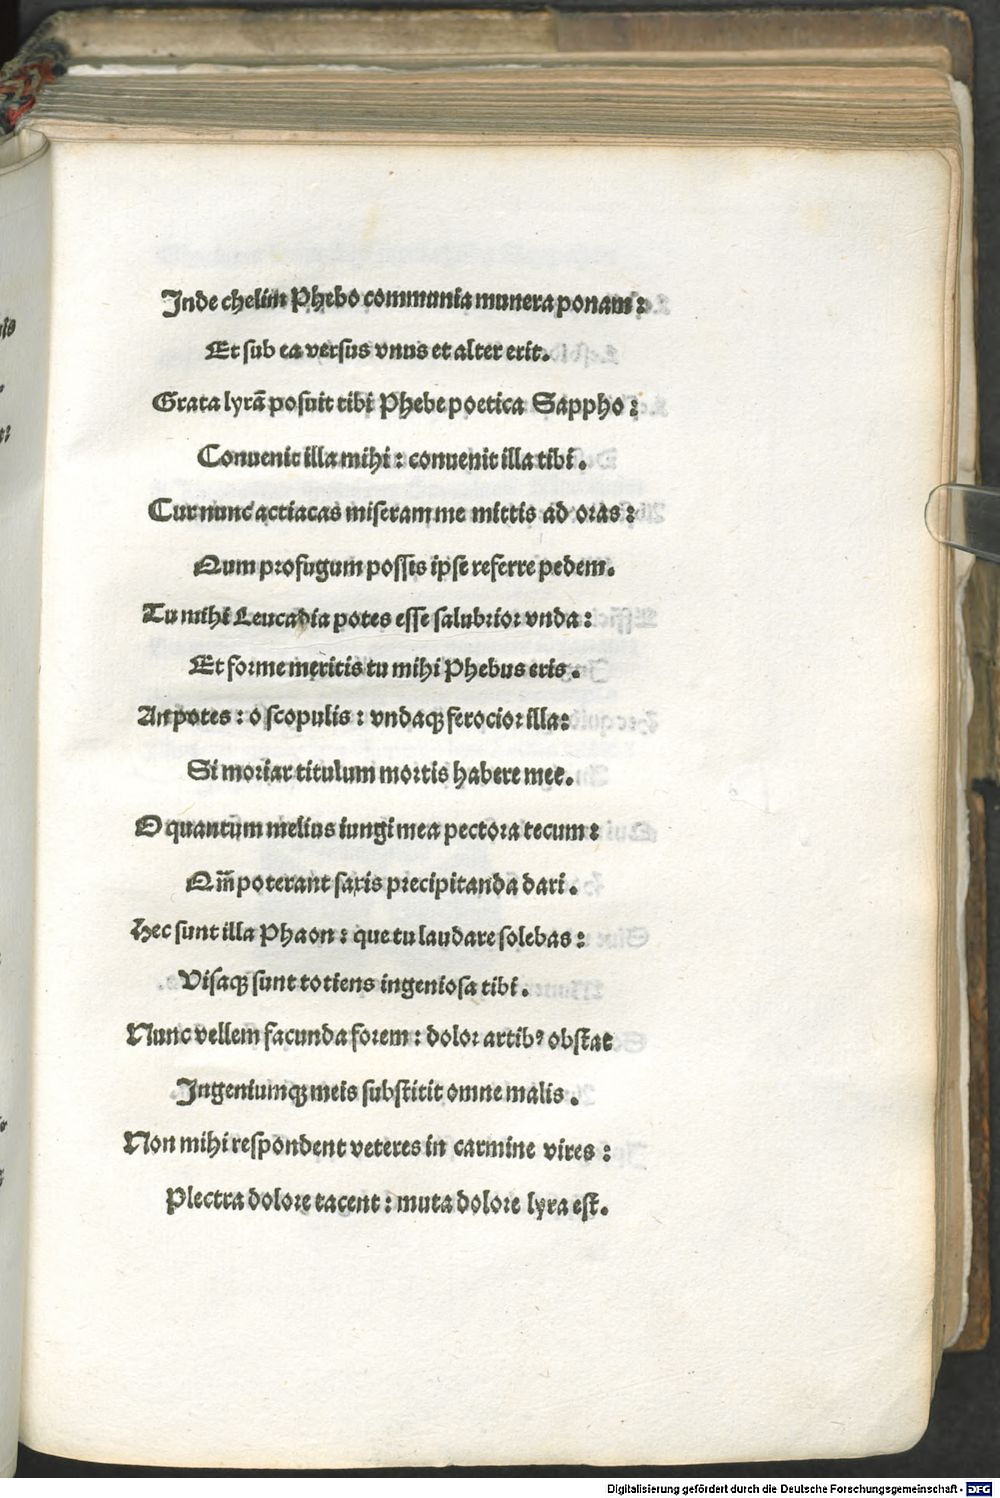 Inde chelim Phebo communia munera ponam:
Et sub ea versus vnus et alter erit.
Grata lyrã posuit tibi Phebe poetica Sappho:
Conuenit illa mihi: conuenit illa tibi.
Cur nunc actiacas miseram me mittis ad oras:
Qum profugum possis ipse referre pedem.
Tu mihi Leucadia potes esse salubrior vnda:
Et forme meritis tu mihi Phebus eris.
An potes: o scopulis: vndaqꝫ ferocior illa:
Si moriar titulum mortis habere mee.
O quantum melius iungi mea pectora tecum:
Qm̃ poterant saxis precipitanda dari.
Hec sunt illa Phaon: que tu laudare solebas:
Visaqꝫ sunt totiens ingeniosa tibi.
Nunc vellem facunda forem: dolor artibꝰ obstat
Ingeniumqꝫ meis substitit omne malis.
Non mihi respondent veteres in carmine vires:
Plectra dolore tacent: muta dolore lyra est.
Digitalisierung gefördert durch die Deutsche Forschungsgemeinschaft - DFG